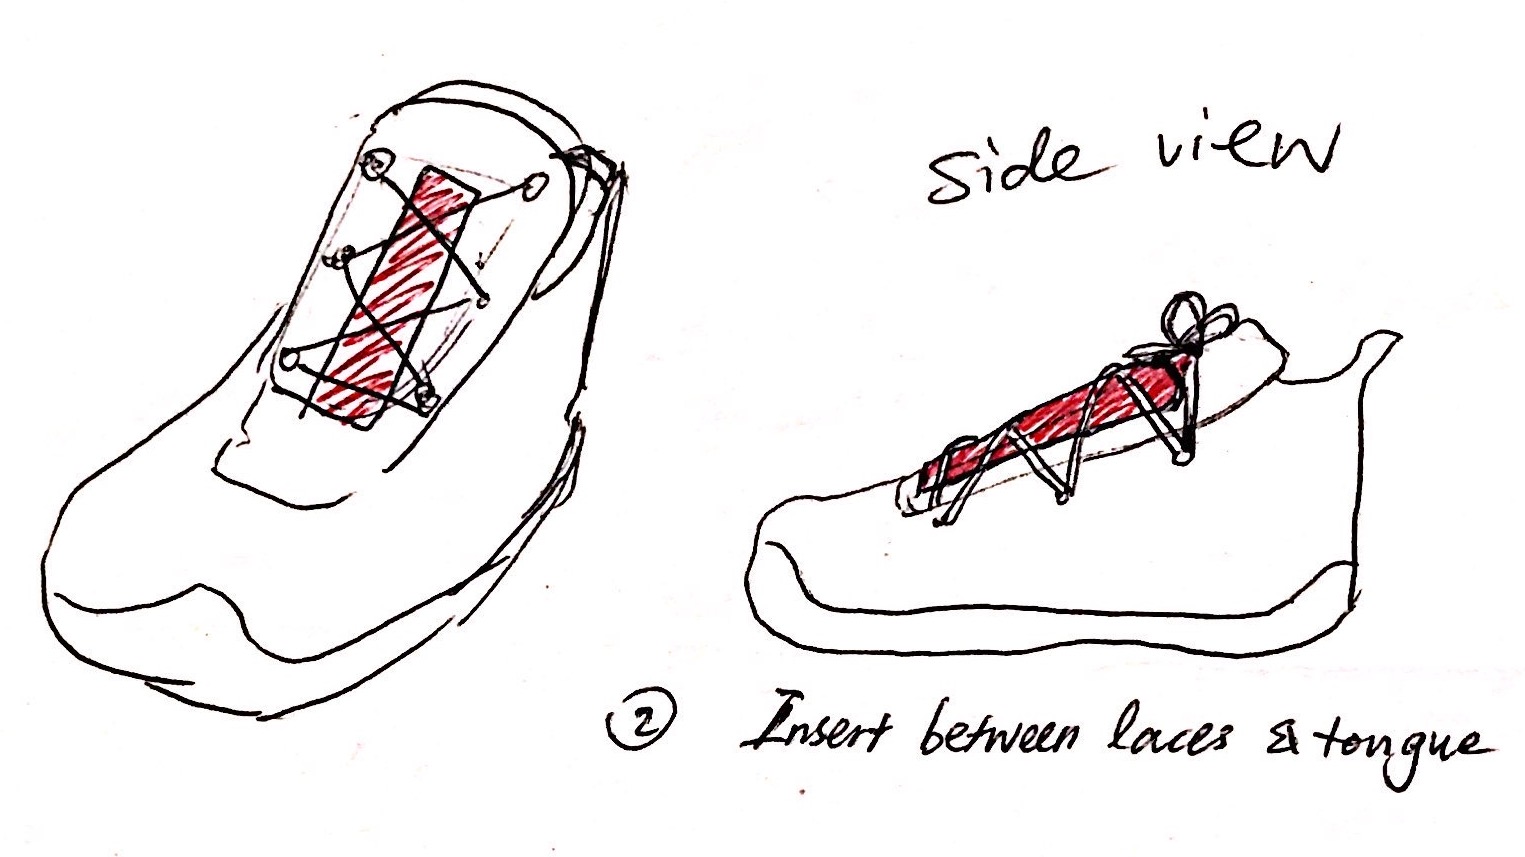 side view
② Insert between laces & tongue